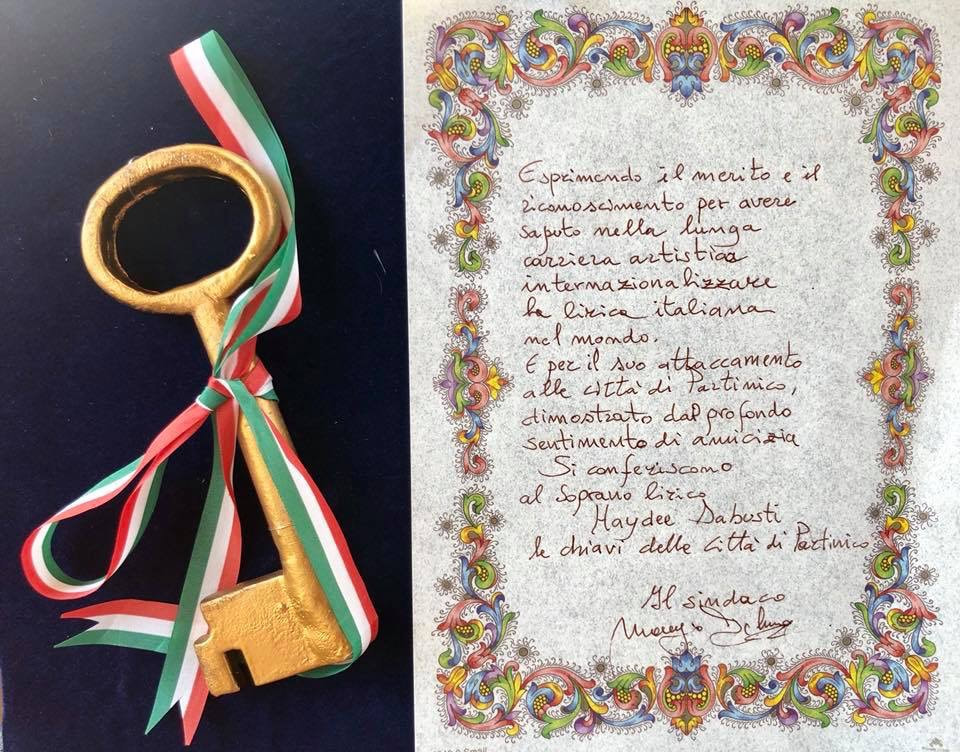 Esprimendo il merito e il
riconoscimento per avere
saputo nella lunga
carriera artistica
internazionalizzare
la lirica italiana
nel mondo.
E per il suo attaccamento
alla città di Partinico,
dimostrato dal profondo
sentimento di amicizia
Si conferiscono
al Soprano lirico
Haydée Dabusti
le chiavi della città di Partinico
Il sindaco